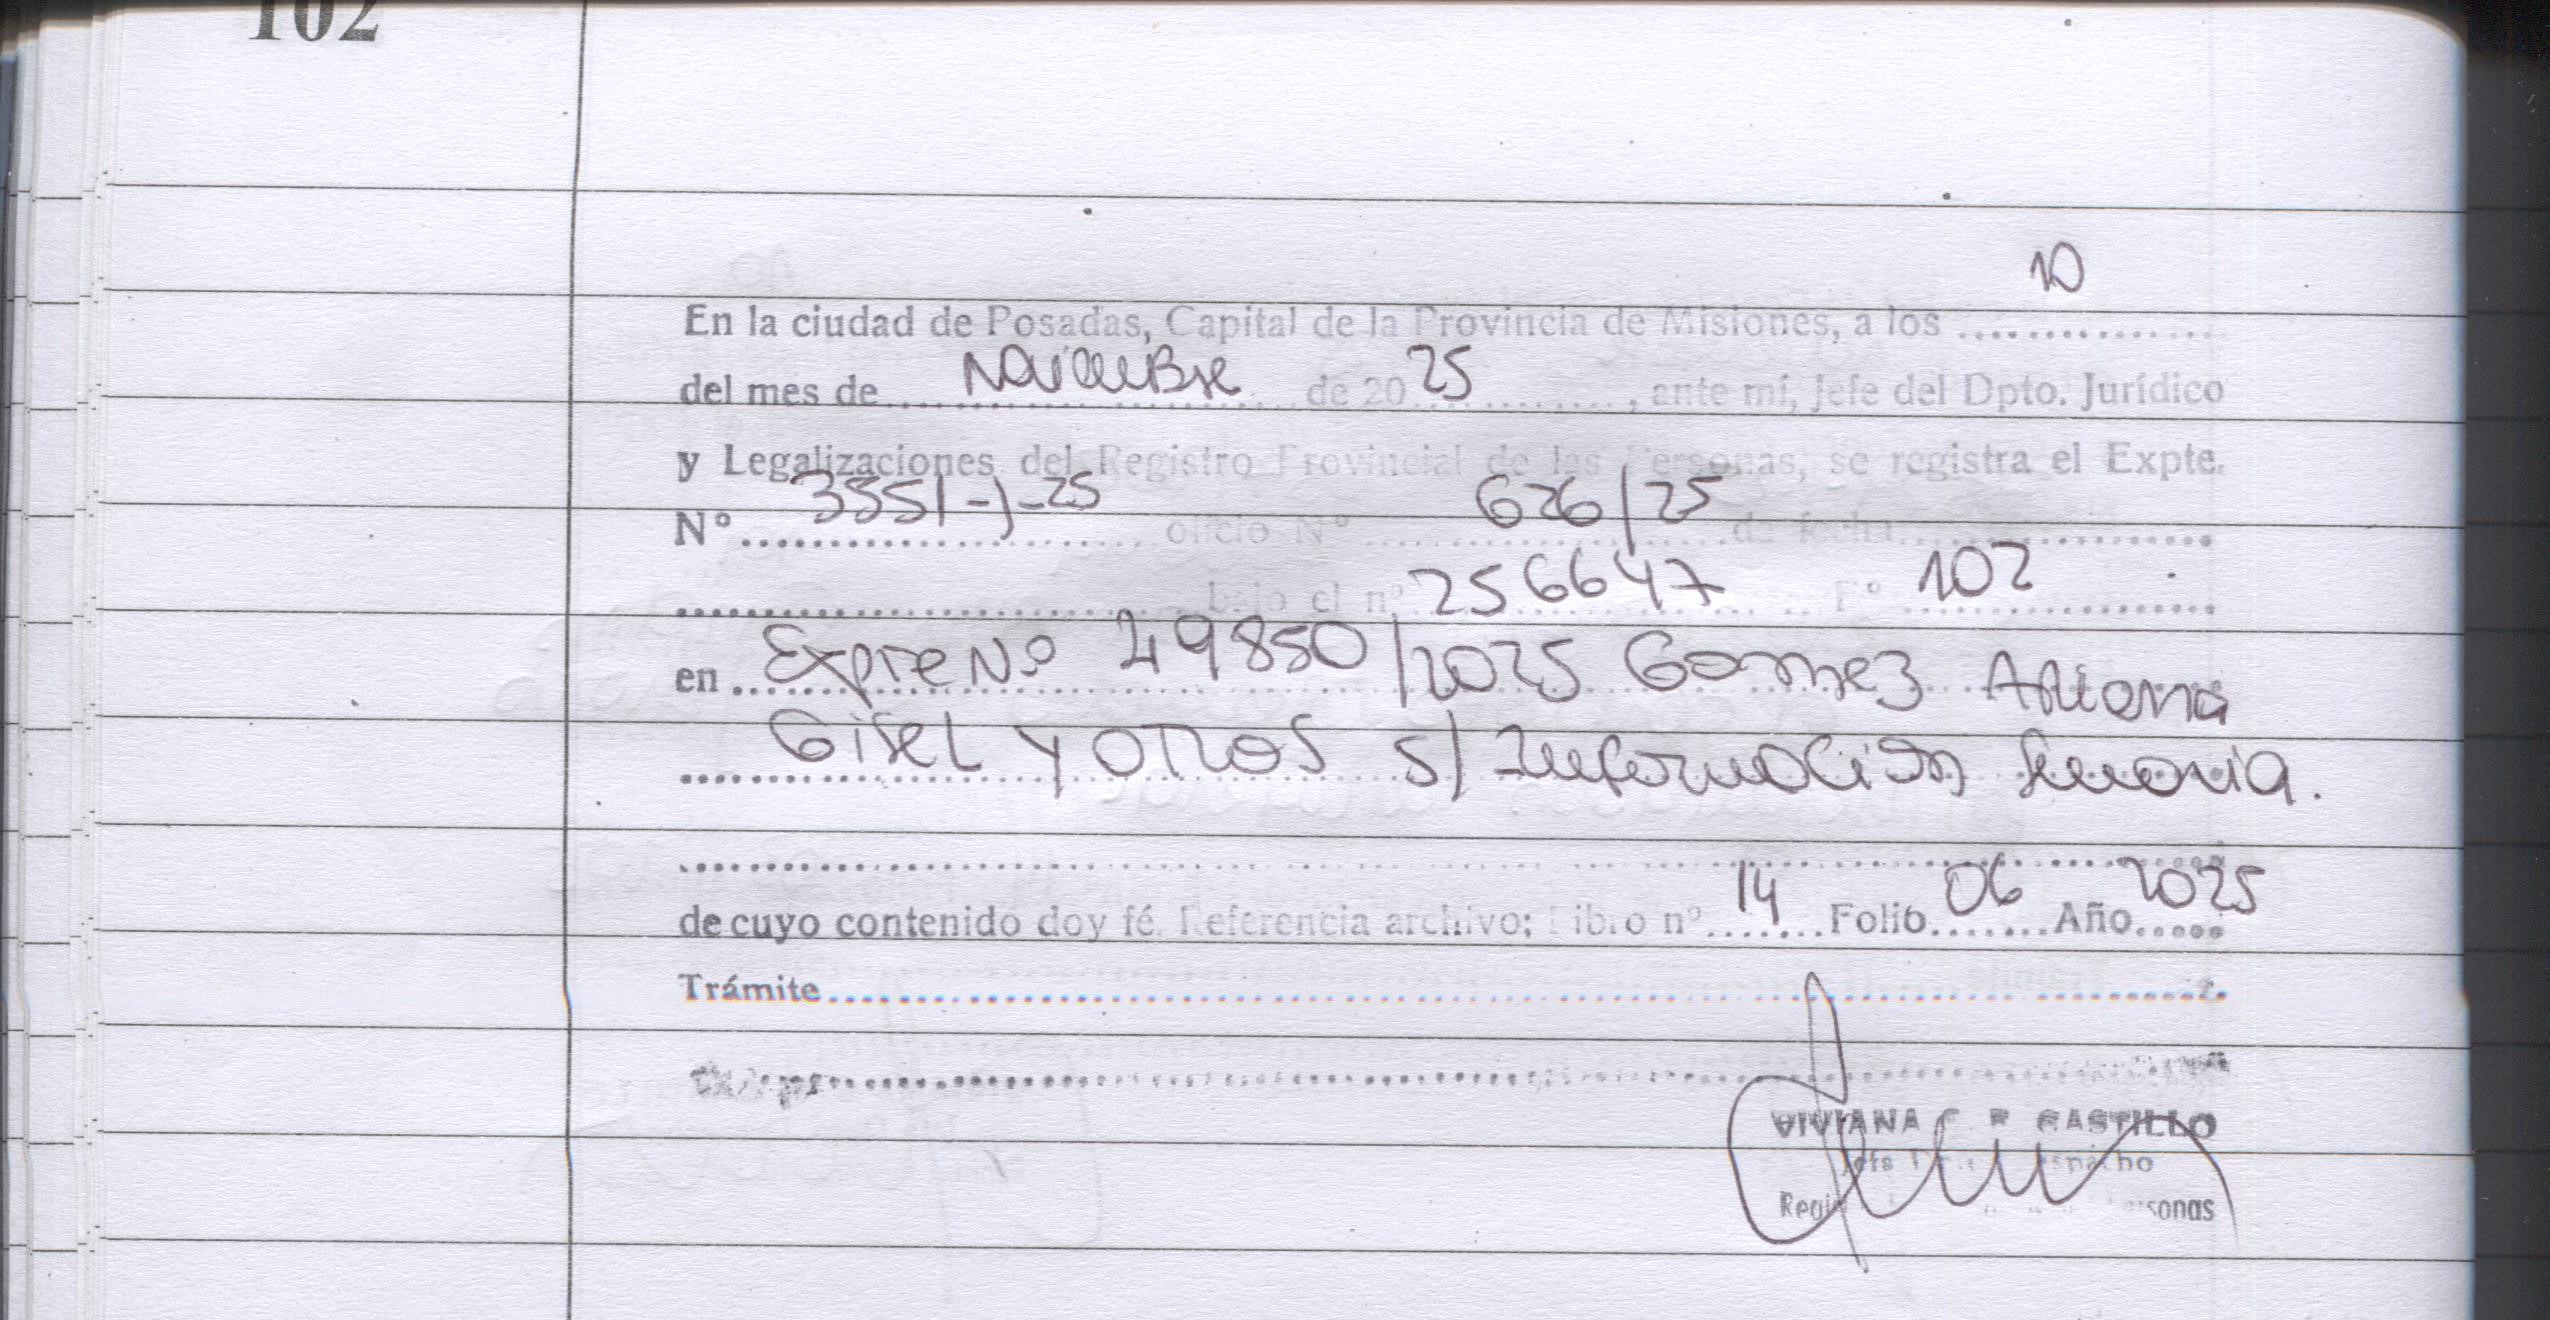 102
10
En la ciudad de Posadas, Capital de la Provincia de Misiones, a los ................
del mes de Noviembre de 20 25 , ante mí, Jefe del Dpto. Jurídico
y Legalizaciones del Registro Provincial de las Personas, se registra el Expte.
Nº 3351-J-25 oficio Nº 626/25 de fecha ................
................ bajo el nº 256647 Fº 102
en Expte Nº 49850/2025 Gomez
Gisel y otros s/ Información Sumaria.
de cuyo contenido doy fé. Referencia archivo; Libro nº 14 Folio 06 Año 2025
Trámite................
VIVIANA CASTILLO